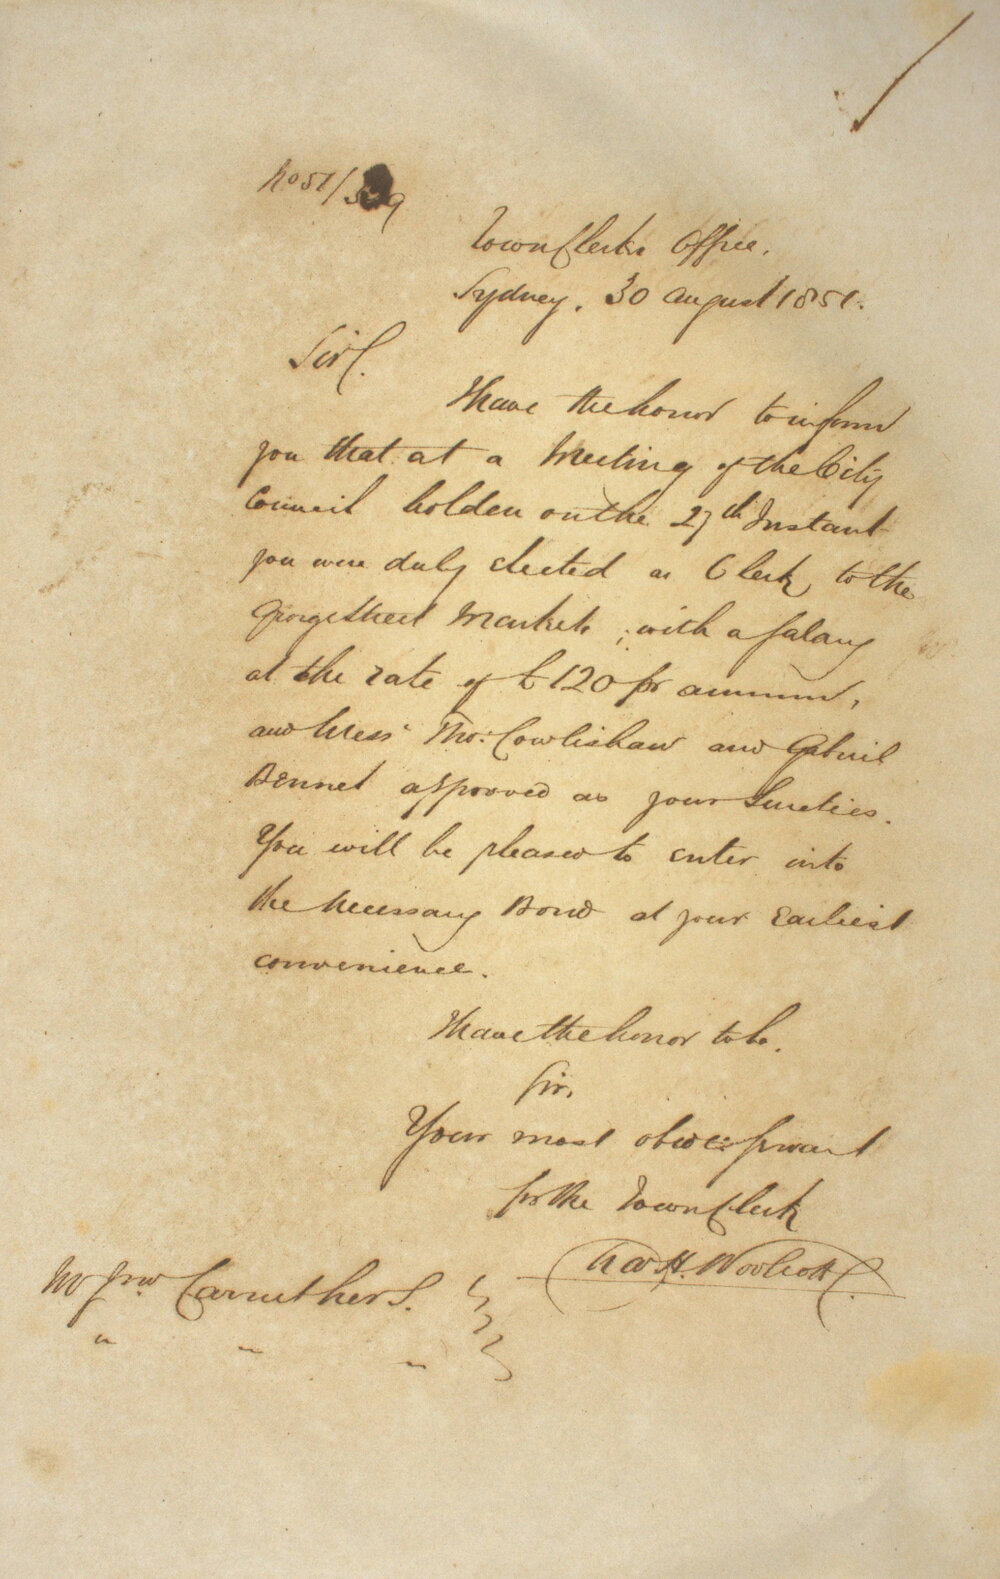 No 51/
Town Clerks Office,
Sydney, 30 August 1851.
Sir.
I have the honor to inform
you that at a Meeting of the City
Council holden on the 27th Instant
you were duly elected as Clerk to the
George Street Markets, with a salary
at the rate of £120 pr annum,
and Messrs Thos. Cowlishaw and Gabriel
Bennet approved as your Sureties.
You will be pleased to enter into
the necessary Bond at your Earliest
convenience.
I have the honor to be.
Sir,
Your most obedt. Servant
for the Town Clerk
Chas H. Woolcott
Mr Jno Carruthers.
" " "